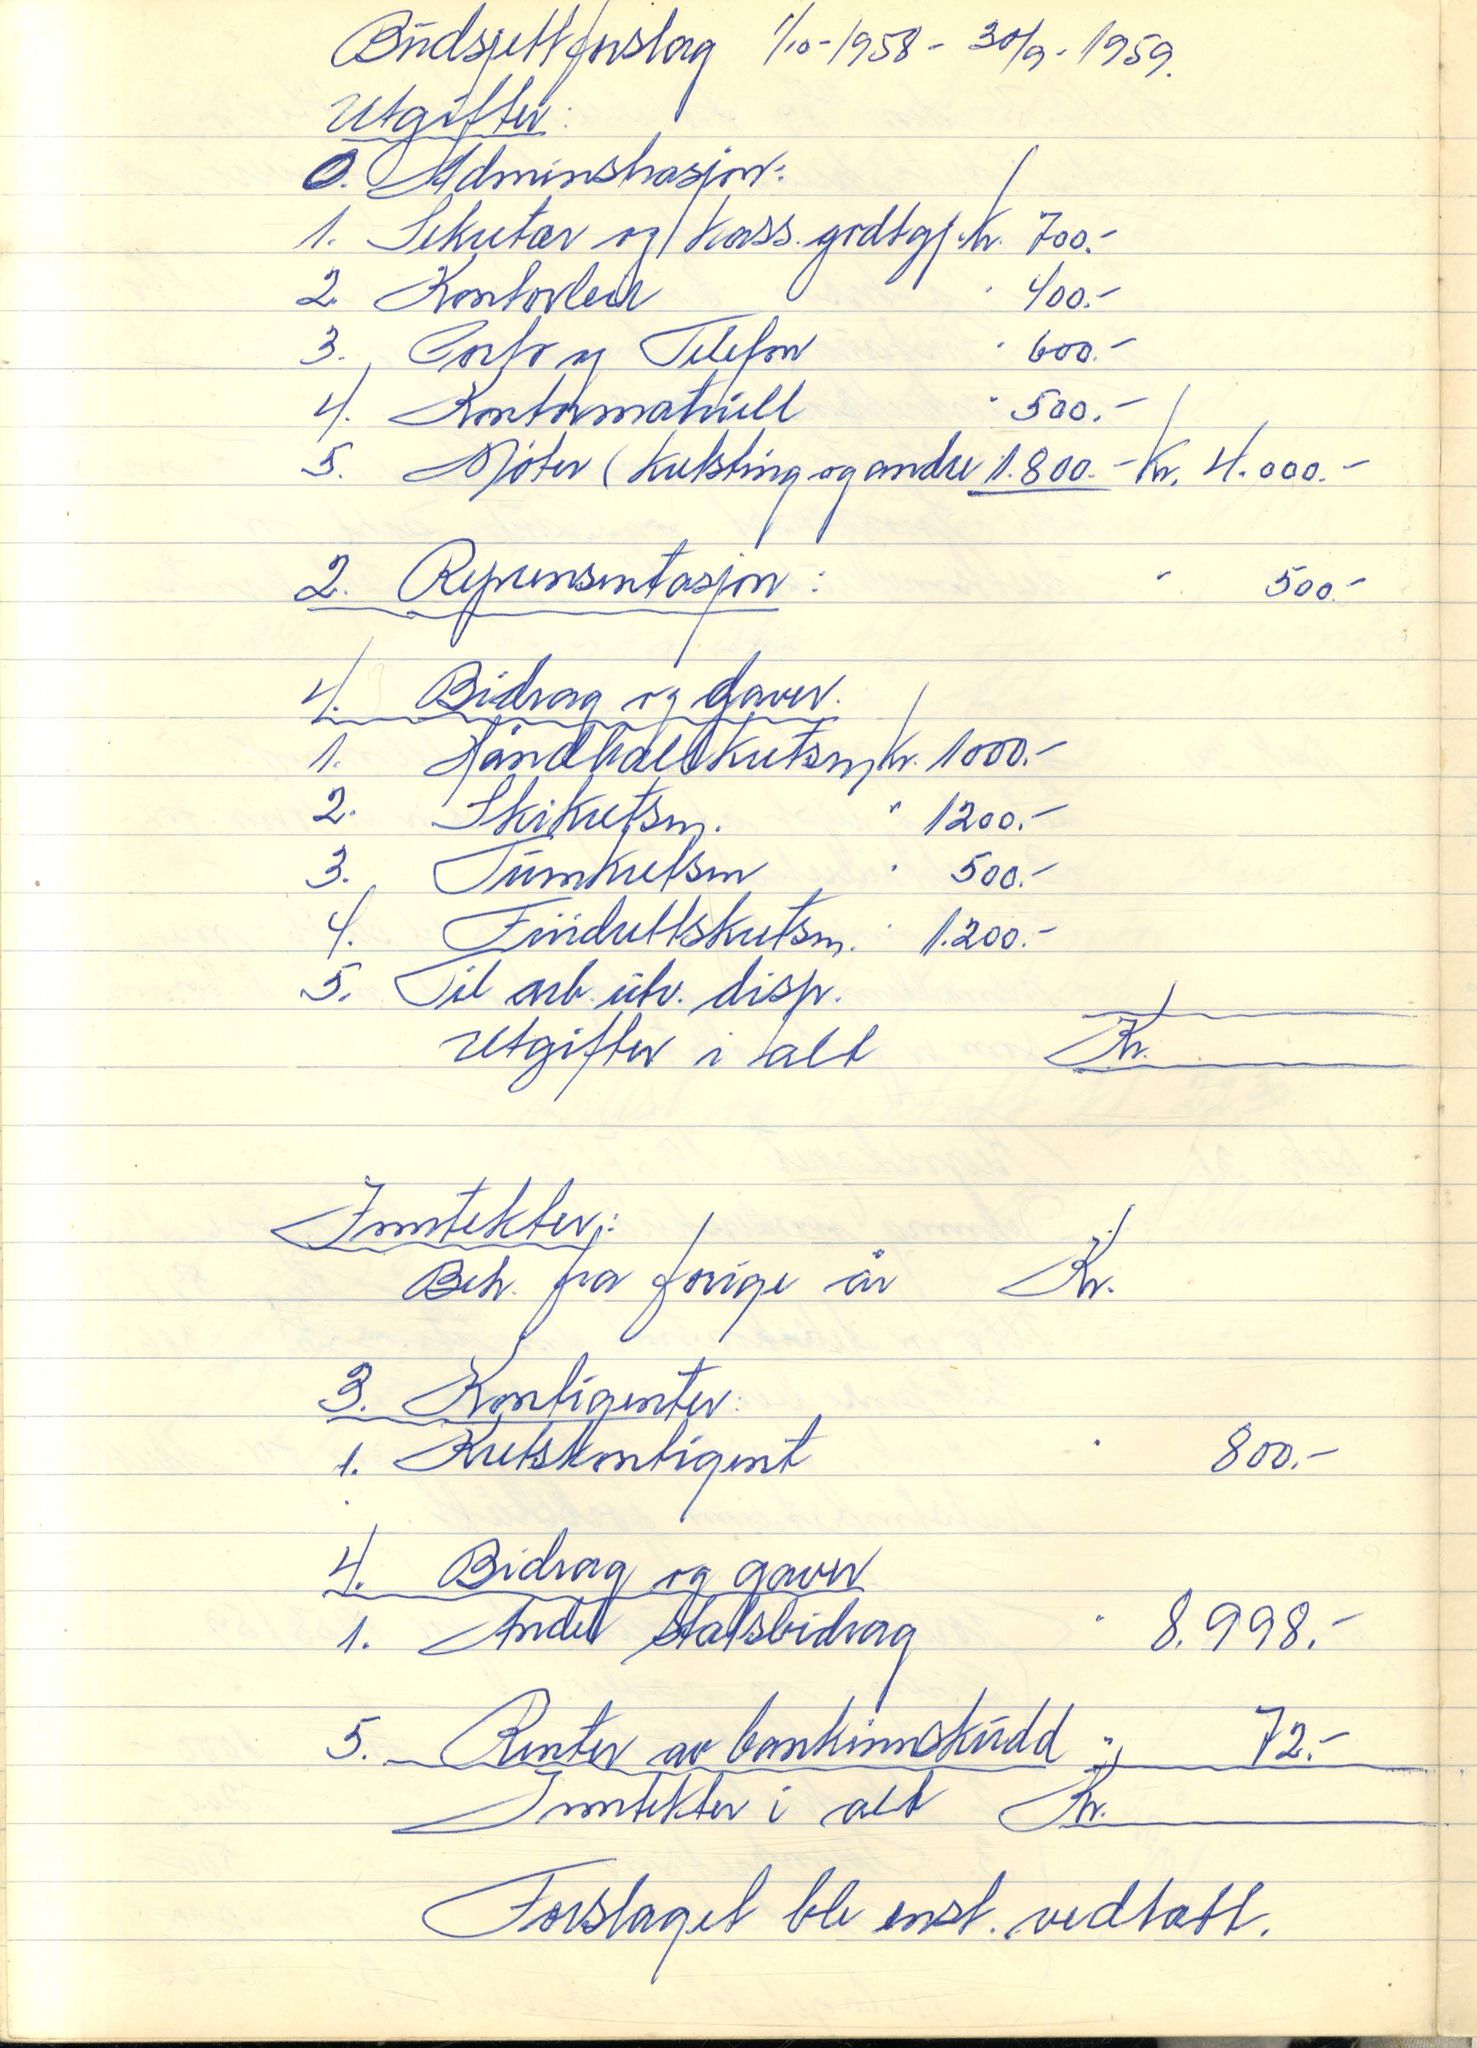 Budsjettforslag 1/10-1958 - 30/9-1959.
Utgifter:
0. Adminstrasjon:
1. Sekretær og kass. godtgj. kr. 700.-
2. Kontorleie " 400.-
3. Porto og Telefon " 600.-
4. Kontormatriell " 500.-
5. Møter (kretsting og andre 1.800.- Kr. 4.000.-
2. Reprensentasjon: " 500.-
4. Bidrag og gaver.
1. Håndballkretsen, kr. 1000.-
2. Skikretsen. " 1200.-
3. Turnkretsen " 500.-
4. Friidrettskretsen. " 1.200.-
5. Til arb. utv. disp.
Utgifter i alt Kr.
Inntekter:
Beh. fra forige år Kr.
3. Kontigenter:
1. Kretskontigent " 800.-
4. Bidrag og gaver
1. Andel statsbidrag " 8.998.-
5. Renter av bankinnskudd " 72.-
Inntekter i alt Kr.
Forslaget ble enst. vedtatt.